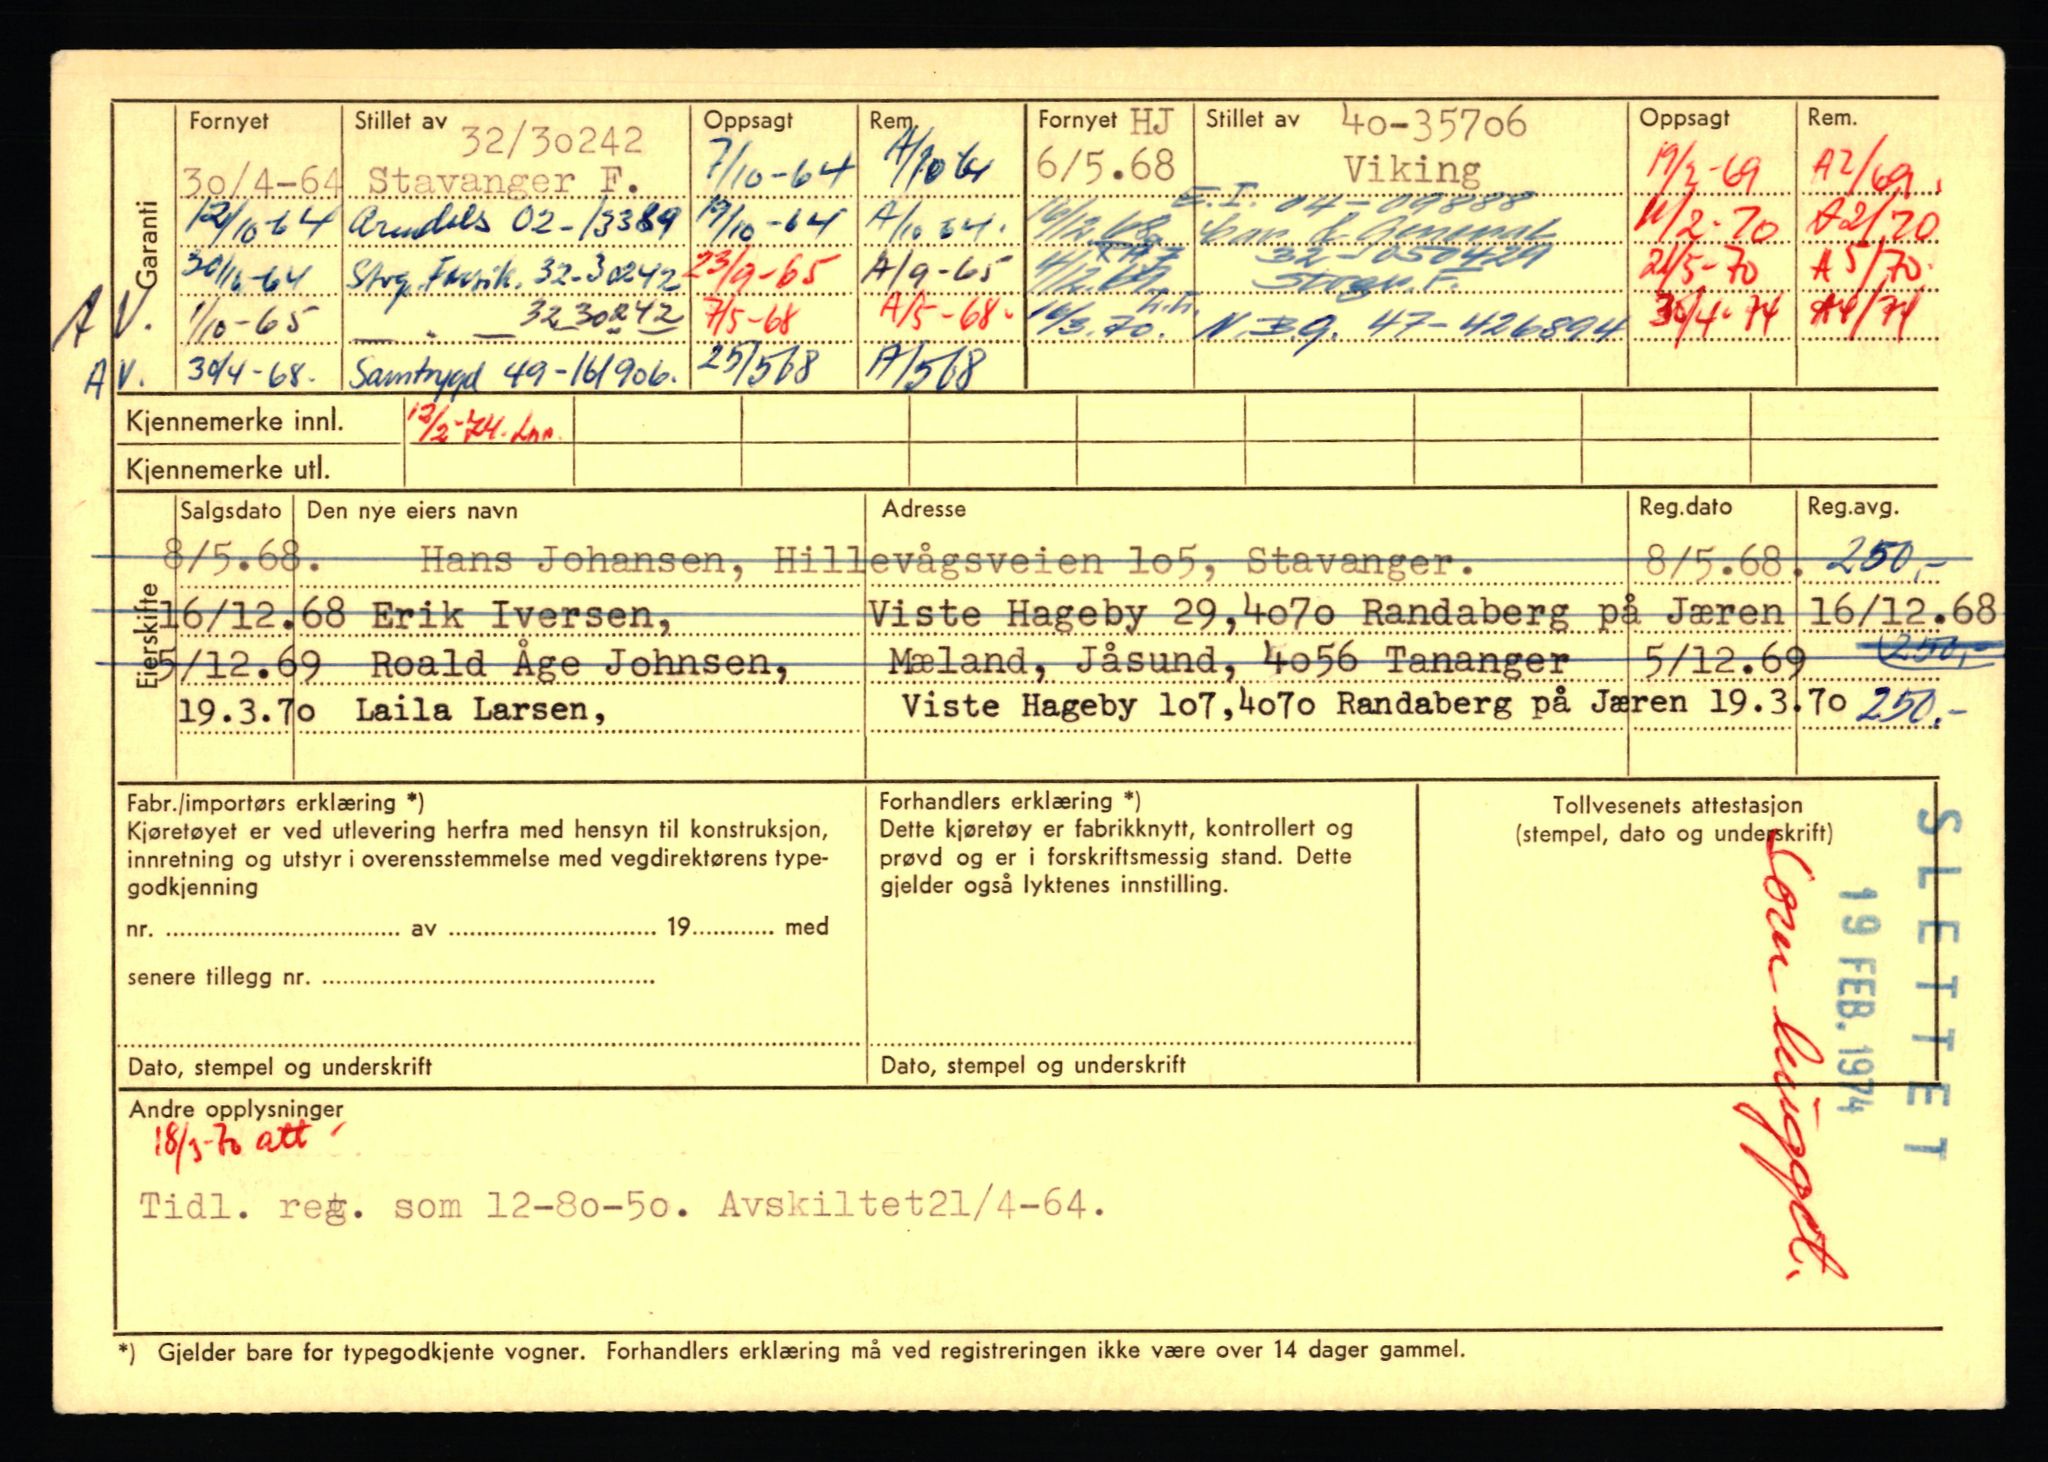 Fornyet Stillet av 32/30242 Oppsagt Rem. Fornyet HJ Stillet av 40-35706 Oppsagt Rem.
30/4-64 Stavanger F. 7/10-64 A/10 64 6/5.68 Viking 19/2-69 A2/69.
12/10-64 Arendals 02-13389 19/10-64 A/10 64. 16/12.68 E.I. 04-09888 11/2-70 A2/70
30/10-64 Stvg. 32-30242 23/9-65 A/9-65 32-050429 21/5-70 A5/70.
A V. 1/10-65 32 30242 7/5-68 A/5-68. 16/3.70. 47-426894 30/4-74 A4/74
A V. 30/4-68. Samtrygd 49-161906. 25/5 68 A/5 68
Garanti
Kjennemerke innl. 12/2-74.
Kjennemerke utl.
Eierskifte
Salgsdato Den nye eiers navn Adresse Reg.dato Reg.avg.
8/5.68. Hans Johansen, Hillevågsveien 1o5, Stavanger. 8/5.68. 250,-
16/12.68 Erik Iversen, Viste Hageby 29,4o7o Randaberg på Jæren 16/12.68
5/12.69 Roald Åge Johnsen, Mæland, Jåsund, 4o56 Tananger 5/12.69 250,-
19.3.7o Laila Larsen, Viste Hageby 1o7,4o7o Randaberg på Jæren 19.3.7o 250.-
Fabr./importørs erklæring *)
Kjøretøyet er ved utlevering herfra med hensyn til konstruksjon,
innretning og utstyr i overensstemmelse med vegdirektørens type-
godkjenning
nr. av 19 med
senere tillegg nr.
Dato, stempel og underskrift
Forhandlers erklæring *)
Dette kjøretøy er fabrikknytt, kontrollert og
prøvd og er i forskriftsmessig stand. Dette
gjelder også lyktenes innstilling.
Dato, stempel og underskrift
Tollvesenets attestasjon
(stempel, dato og underskrift)
SLETTET
19 FEB. 1974
Andre opplysninger
18/3-70 att
Tidl. reg. som 12-8o-5o. Avskiltet21/4-64.
*) Gjelder bare for typegodkjente vogner. Forhandlers erklæring må ved registreringen ikke være over 14 dager gammel.